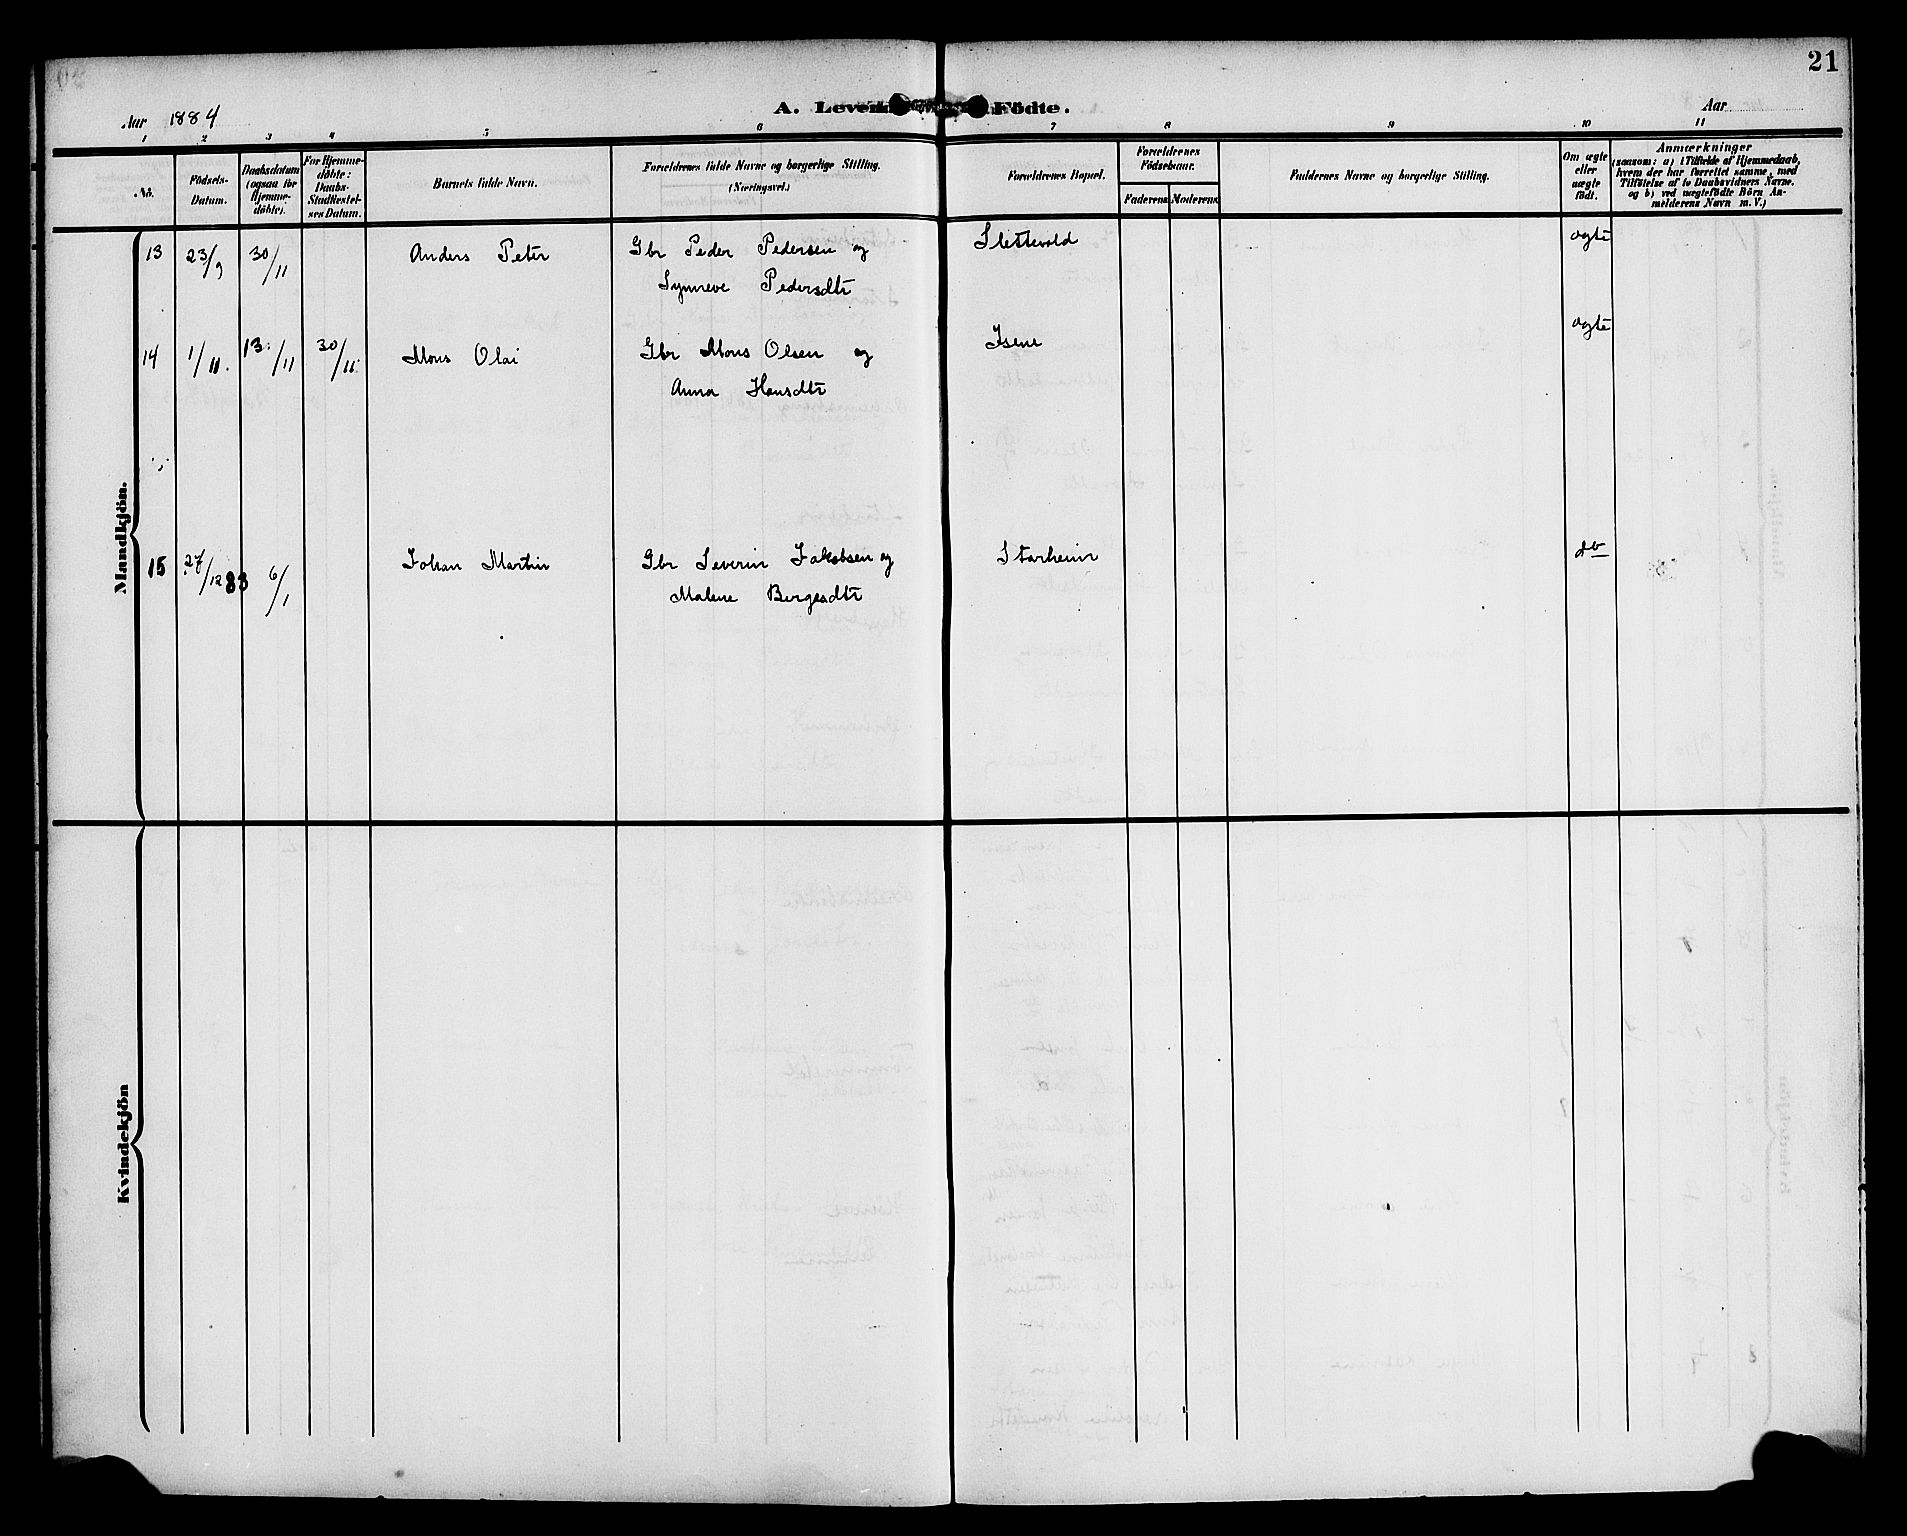 21
A. Levende Födte.
Aar 1884
Aar
1 2 3 4 5 6 7 8 9 10 11
No.
Födsels-Datum.
Daabsdatum (ogsaa for Hjemme-döbte).
For Hjemme-döbte: Daabs-Stadfæstel-ses Datum.
Barnets fulde Navn.
Forældrenes fulde Navne og borgerlige Stilling. (Næringsvei.)
Forældrenes Bopæl.
Forældrenes Födselsaar.
Faderens Moderens
Faddernes Navne og borgerlige Stilling.
Om ægte eller uægte födt.
Anmærkninger
(saasom: a) i Tilfælde af Hjemmedaab,
hvem der har forrettet samme, med
Tilföielse af to Daabsvidners Navne,
og b) ved uægtefödte Börn An-
melderens Navn m. V.)
Mandkjön.
13 23/9 30/11 Anders Peter Gbr Peder Pedersen og Slettevold ægte
Synneve Pedersdtr
14 1/11. 13/11 30/11. Mons Olai Gbr Mons Olsen og Isene ægte
Anna Hansdtr
15 27/12 83 6/1 Johan Martin Gbr Severin Jakobsen og Starheim do
Malene Børgesdtr
Kvindekjön